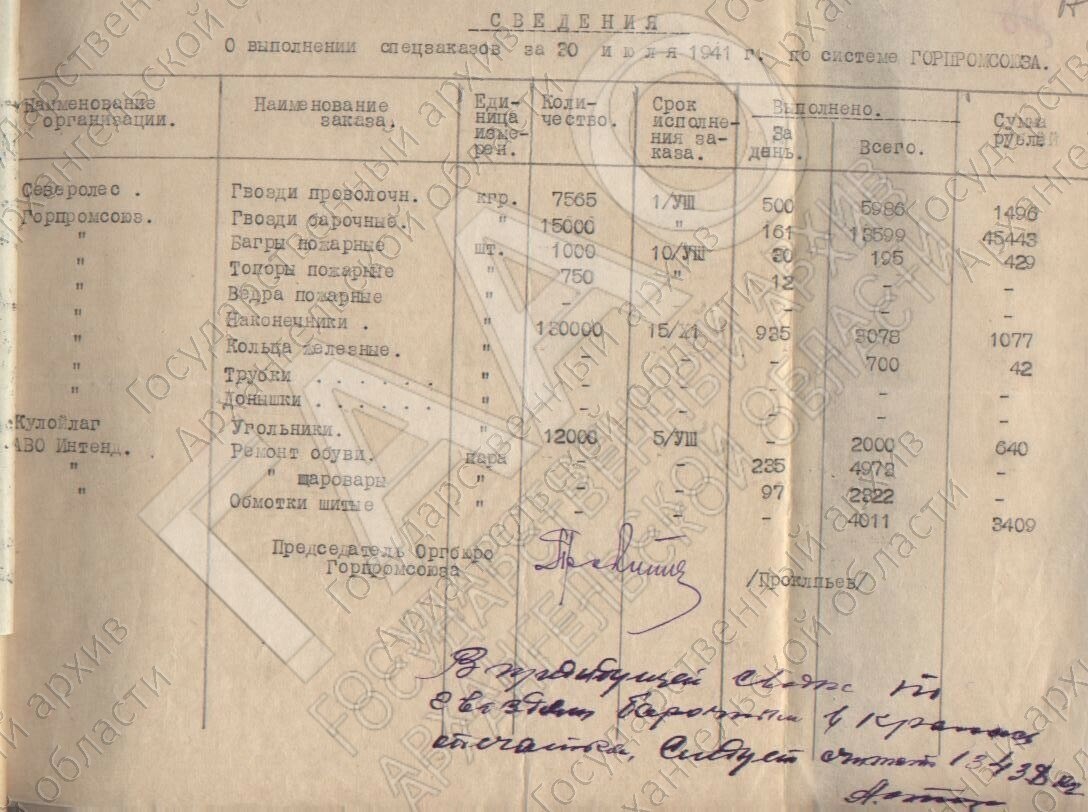 С В Е Д Е Н И Я
О выполнении спецзаказов за 20 и ю л я 1941 г. по системе ГОРПРОМСОЮЗА.
Наименование организации. Наименование заказа. Еди-ница изме-рен. Коли-чество. Срок исполне-ния за-каза. Выполнено. За день. Всего. Сумма рублей
Северолес . Гвозди проволочн. кгр. 7565 1/УШ 500 5986 1496
Горпромсоюз. Гвозди барочные. " 15000 " 161 13599 45443
" Багры пожарные шт. 1000 10/УШ 30 195 429
" Топоры пожарные " 750 " 12 - -
" Ведра пожарные " - - - -
" Наконечники . " 130000 15/X1 935 3078 1077
" Кольца железные. " - - - 700 42
" Трубки . . . . . . . " - - - -
" Донышки . . . . . . . - - - -
Кулойлаг Угольники. " 12000 5/УШ - 2000 640
АВО Интенд. Ремонт обуви. пара - - 235 4972 -
" " шаровары " - - 97 2322 -
" Обмотки шитые " - - - 4011 3409
Председатель Оргбюро
Горпромсоюза
/Прокпьев/
В предыдущей сводке по
гвоздям барочным в
опечатка, следует считать 13438 кг
ГААО
ГОСУДАРСТВЕННЫЙ АРХИВ
АРХАНГЕЛЬСКОЙ ОБЛАСТИ
Государственный архив
Архангельской области